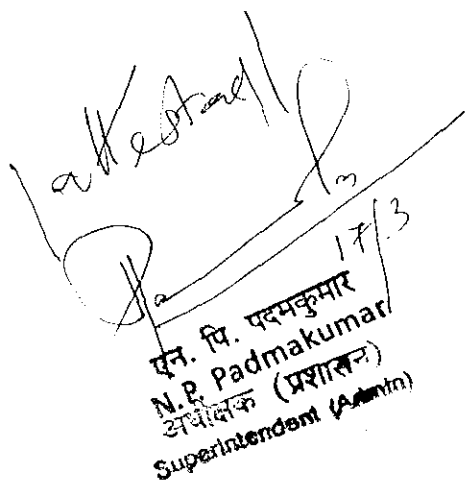 attested
17/3
एन. पि. पदमकुमार
N.P. Padmakumar
अधीक्षक (प्रशासन)
Superintendent (Admin)